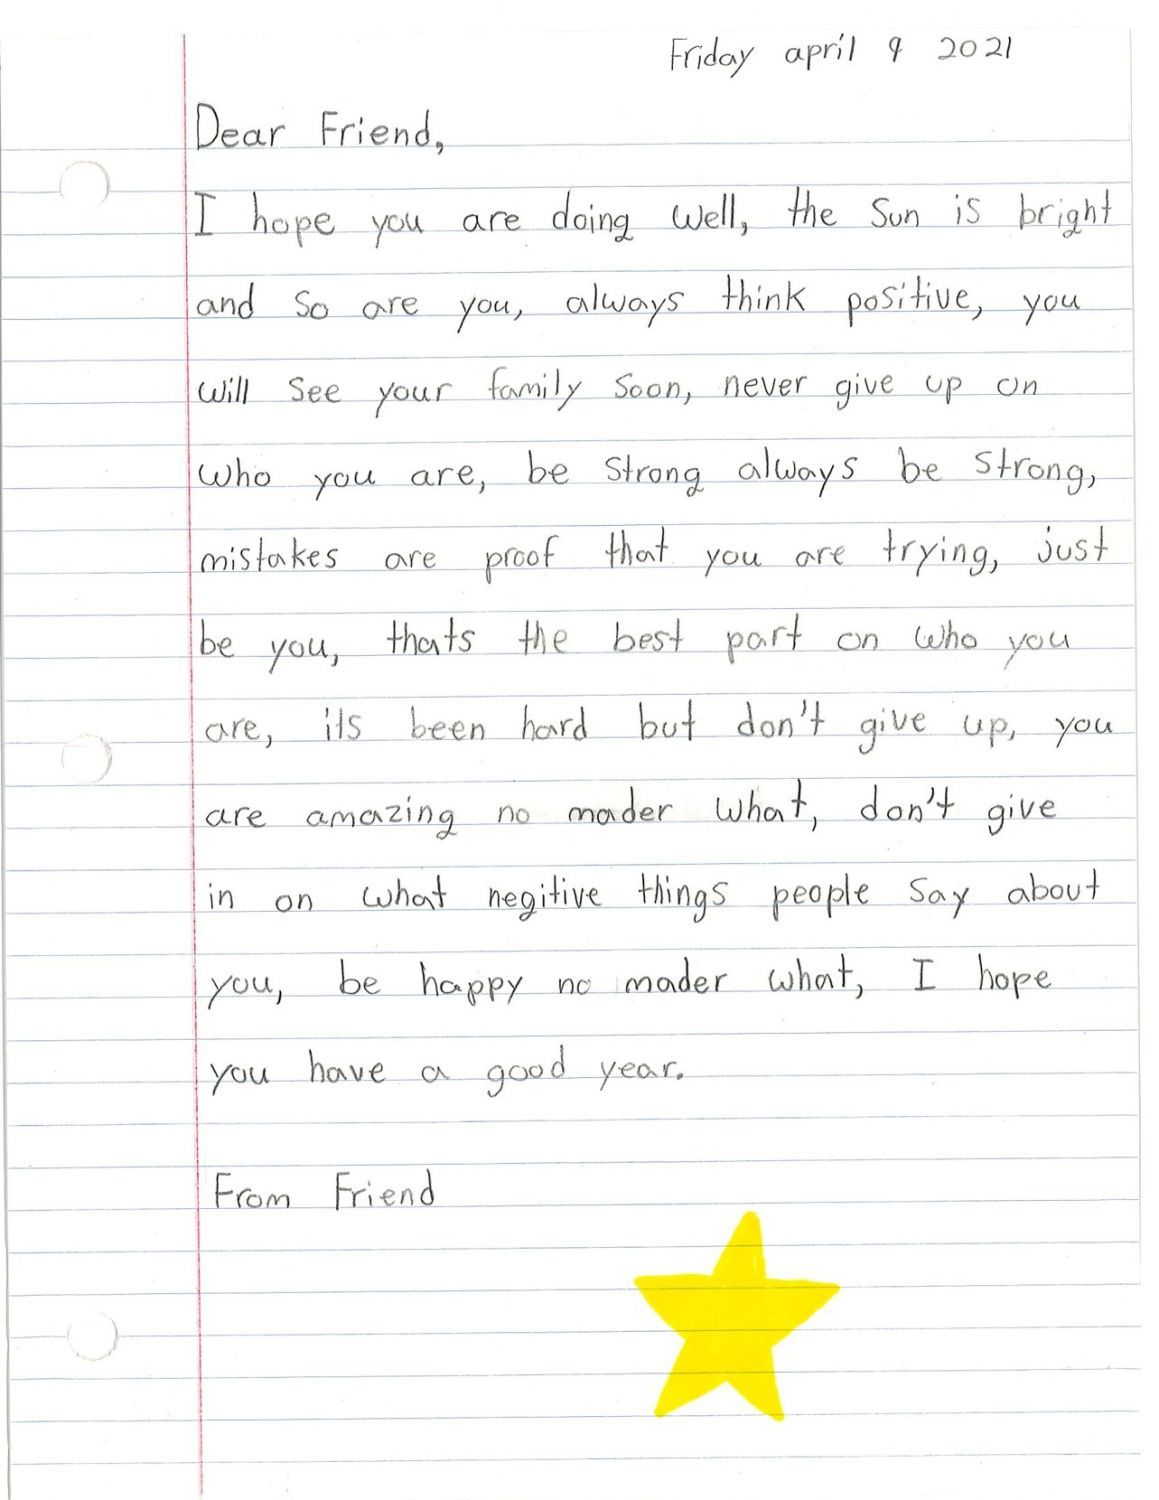 Friday april 9 2021
Dear Friend,
I hope you are doing well, the sun is bright
and so are you, always think positive, you
will see your family soon, never give up on
who you are, be strong always be strong,
mistakes are proof that you are trying, just
be you, thats the best part on who you
are, its been hard but don't give up, you
are amazing no mader what, don't give
in on what negitive things people say about
you, be happy no mader what, I hope
you have a good year.
From Friend